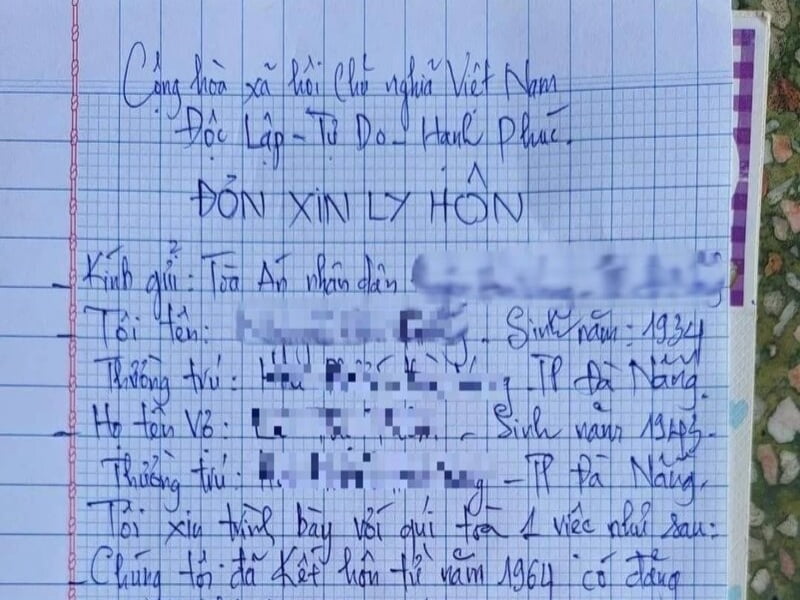 Cộng hòa xã hội Chủ nghĩa Việt Nam
Độc Lập - Tự Do - Hạnh Phúc.
ĐƠN XIN LY HÔN
Kính gửi: Tòa Án nhân dân
Tôi tên: - Sinh năm: 1934
Thường trú: - TP Đà Nẵng.
Họ tên Vợ: - Sinh năm 1943.
Thường trú: - TP Đà Nẵng.
Tôi xin trình bày với quí tòa 1 việc như sau:
- Chúng tôi đã Kết hôn từ năm 1964 có đăng